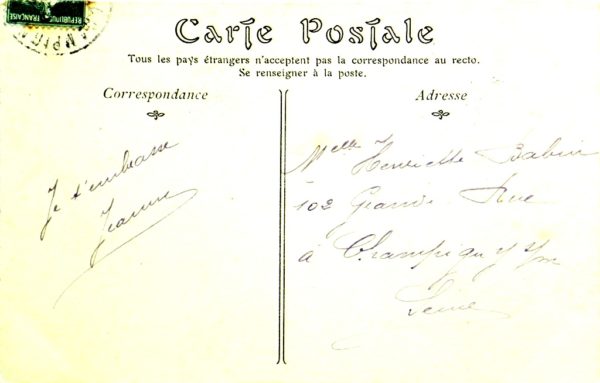 REPUBLIQUE FRANÇAISE
Carte Postale
Tous les pays étrangers n'acceptent pas la correspondance au recto.
Se renseigner à la poste.
Correspondance
Je t'embrasse
Jeanne
Adresse
Melle Henriette Babin
102 Grande Rue
à Champigny s/m
Seine